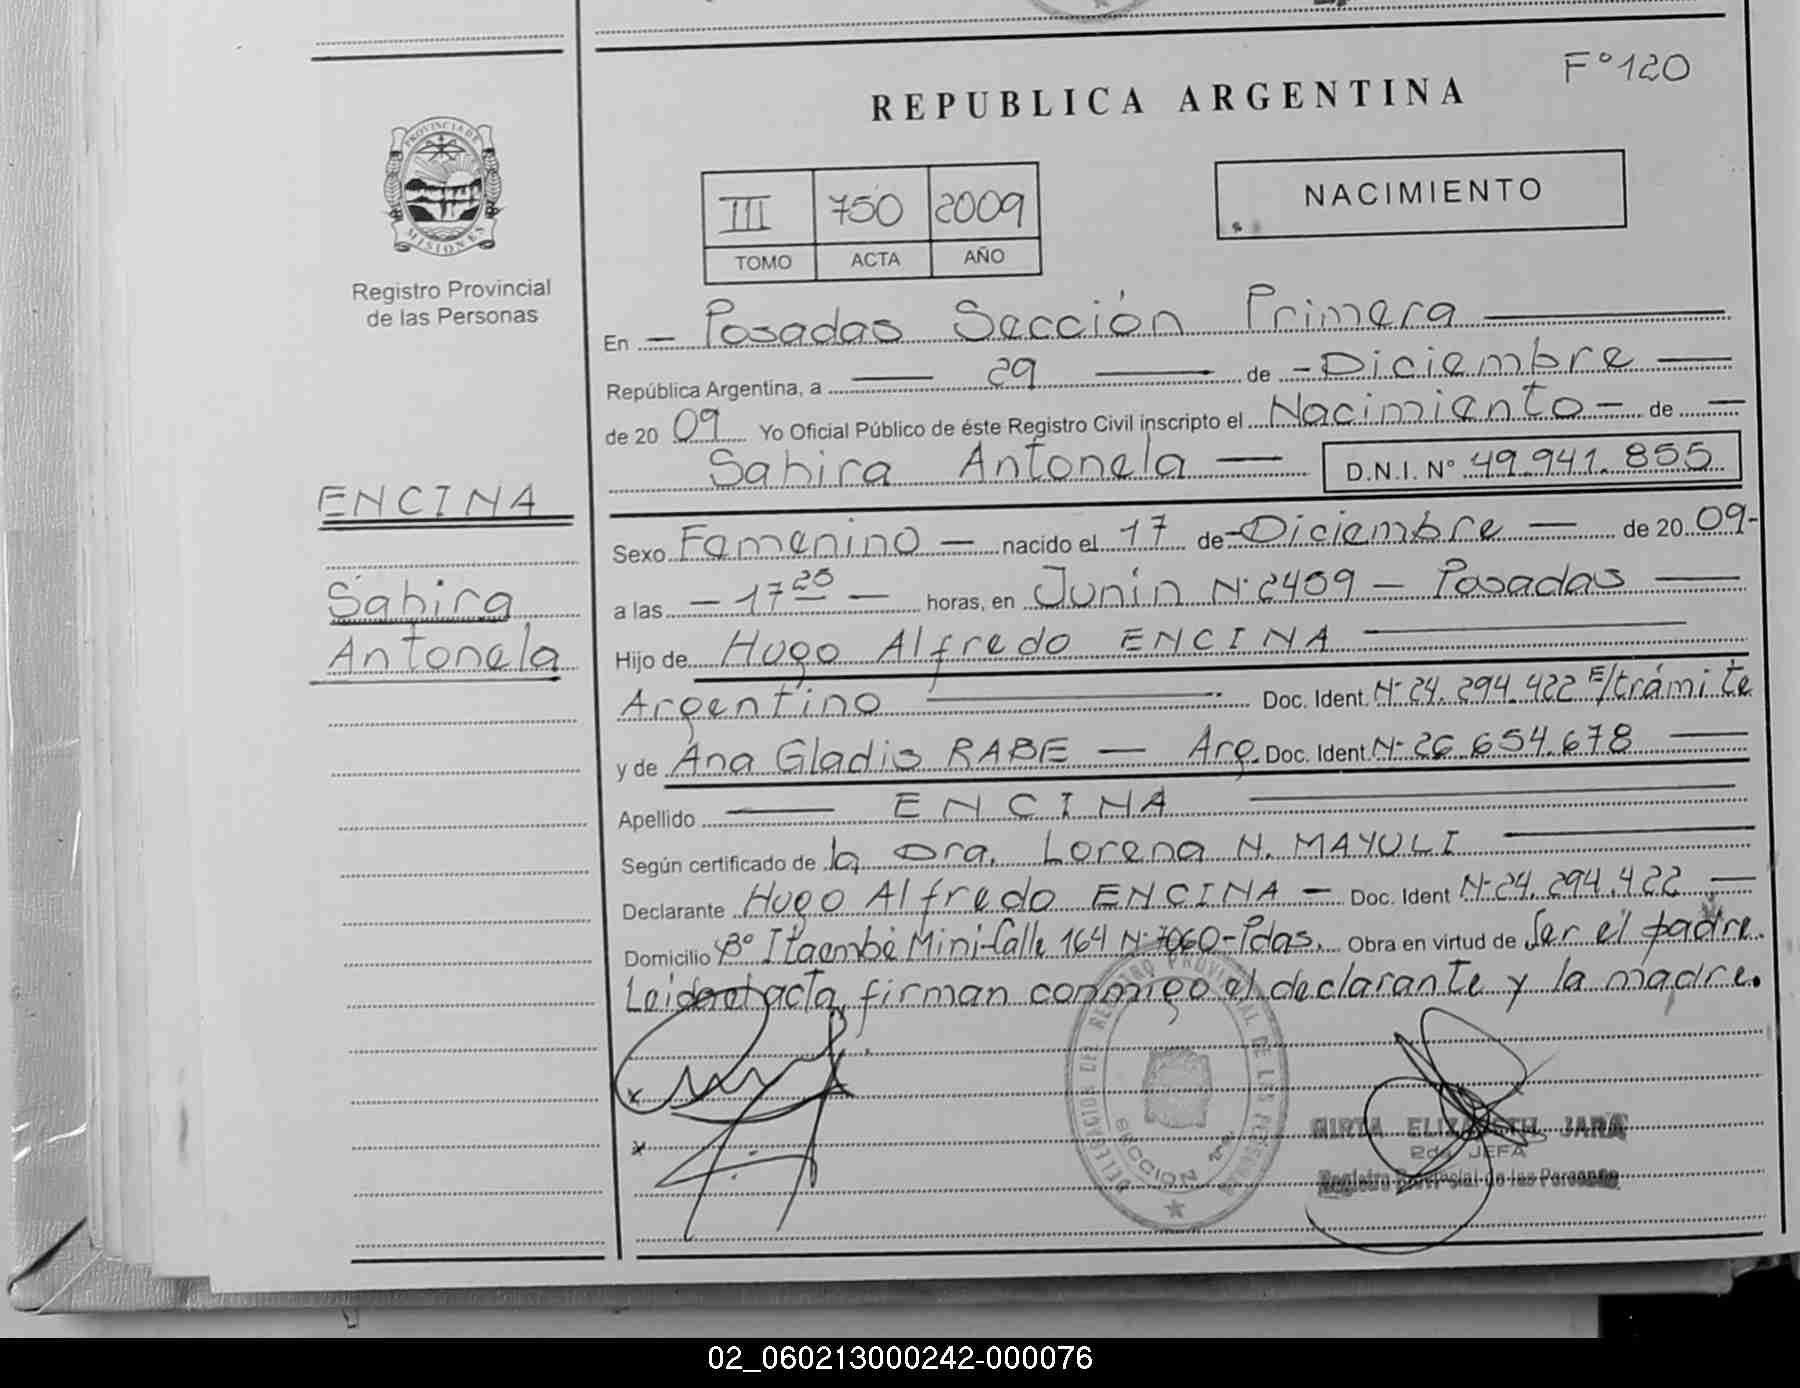 F° 120
REPUBLICA ARGENTINA
PROVINCIA DE
MISIONES
Registro Provincial
de las Personas
III 750 2009
TOMO ACTA AÑO
NACIMIENTO
En — Posadas Sección Primera —
República Argentina, a — 29 — de - Diciembre —
de 20 09 Yo Oficial Público de éste Registro Civil inscripto el Nacimiento - de —
Sahira Antonela — D.N.I. N° 49.941.855
ENCINA
Sahira
Antonela
Sexo Femenino — nacido el 17 de - Diciembre — de 20 09-
a las — 17 25 — horas, en Junín N° 2459 — Posadas —
Hijo de Hugo Alfredo ENCINA —
Argentino — Doc. Ident. N° 24.294.422 E/trámite
y de Ana Gladis RABE — Arg. Doc. Ident. N° 26.654.678 —
Apellido — ENCINA —
Según certificado de la Dra. Lorena N. MAYULI —
Declarante Hugo Alfredo ENCINA — Doc. Ident N° 24.294.422 —
Domicilio B° Itaembé Mini-Calle 164 N° 7060-Pdas. Obra en virtud de Ser el padre.
Leida el acta, firman conmigo el declarante y la madre.
x
x
DELEGACION DEL REGISTRO PROVINCIAL DE LAS PERSONAS
SECCION
MIRTA ELIZABETH JARA
2da JEFA
Registro Provincial de las Personas
02_060213000242-000076